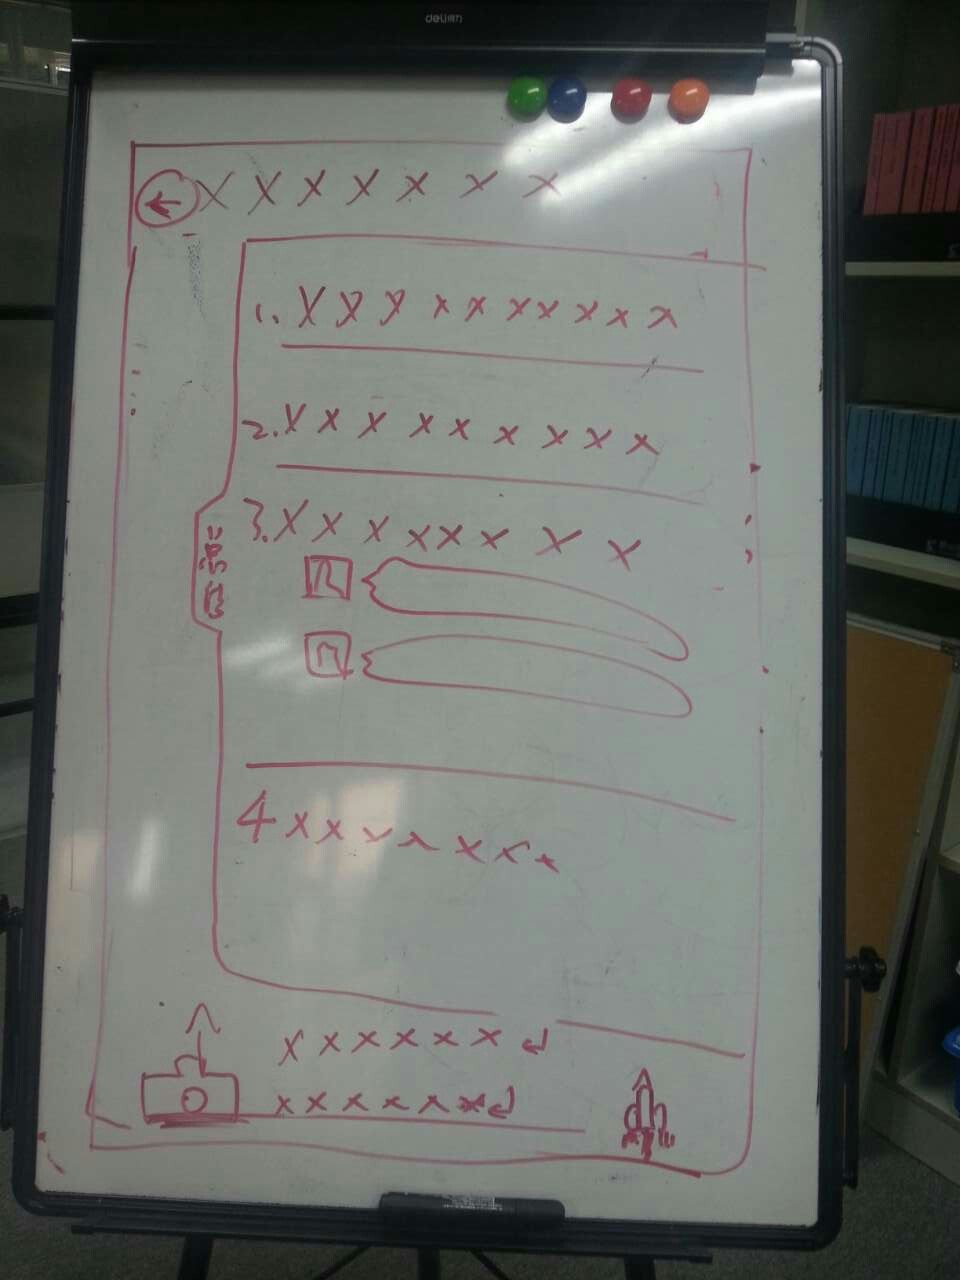 deli 得力
← X X X X X X X
1. X X X X X X X X X X
2. X X X X X X X X X
3. X X X X X X X X X
4 X X X X X X X
X X X X X X ↲
X X X X X X ↲